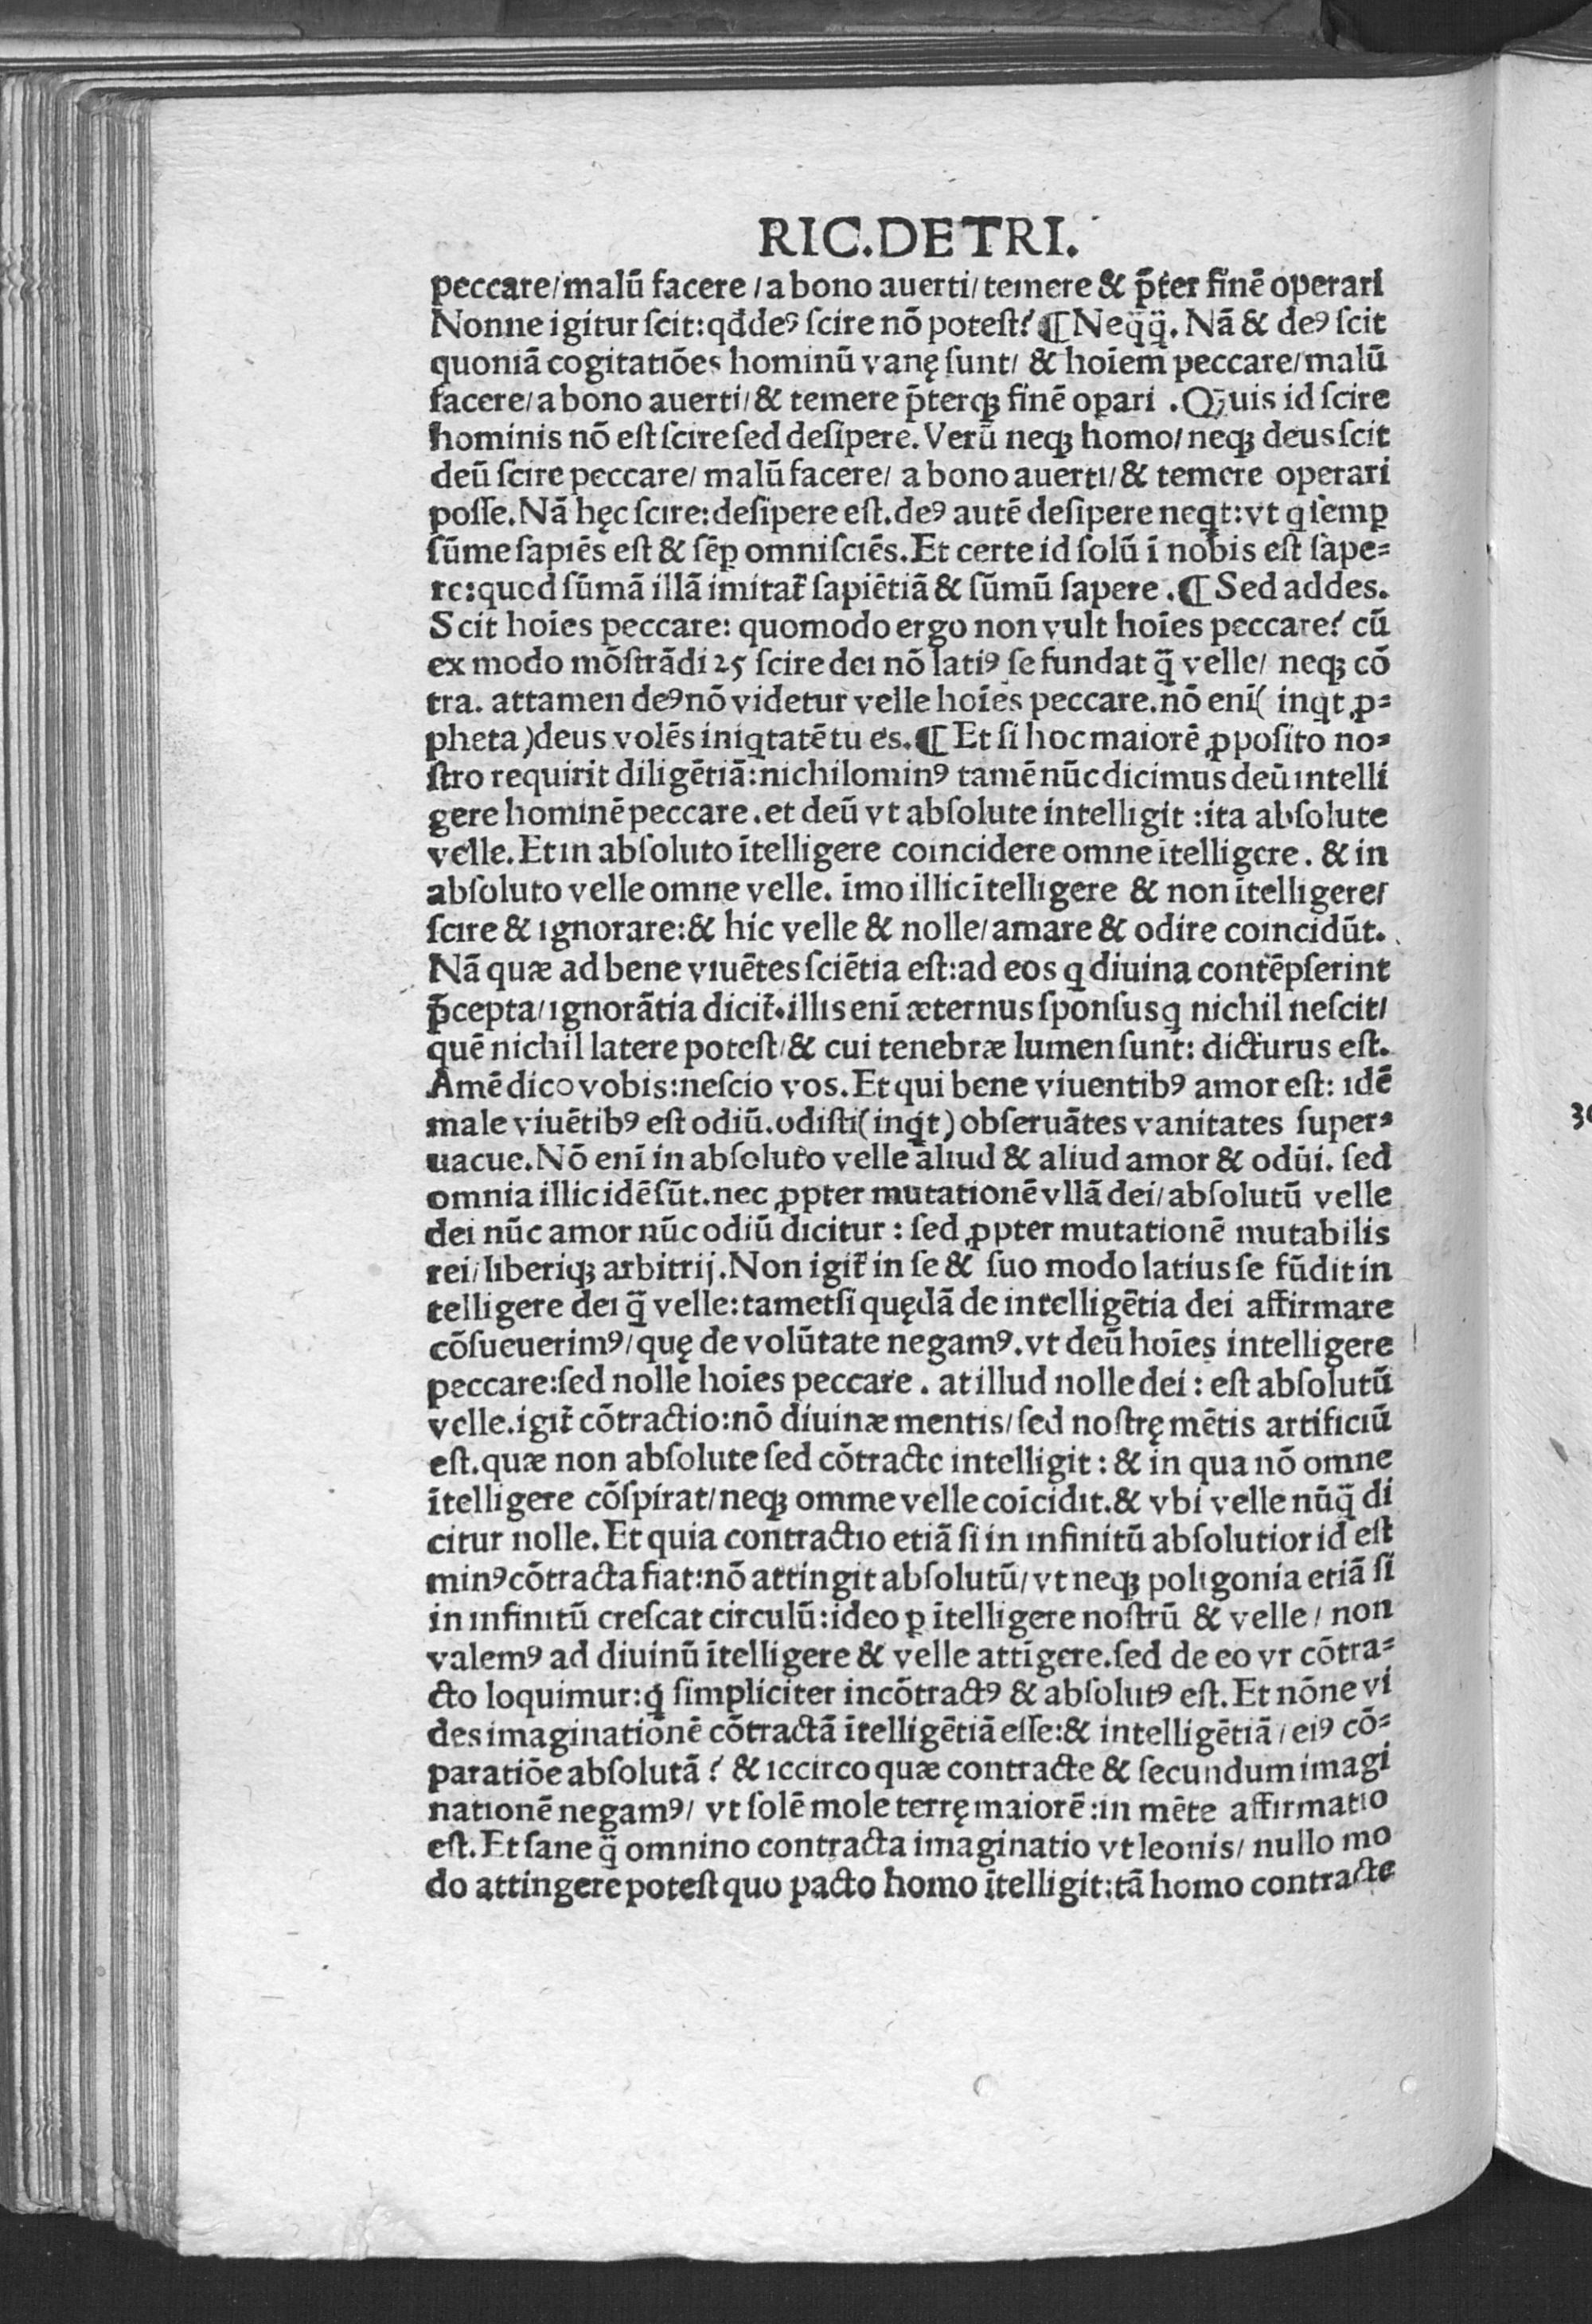 RIC.DE TRI.
peccare/malũ facere/a bono auerti/temere & p̃ter finẽ operari
Nonne igitur ſcit:qđ deꝰ ſcire nõ poteſt? ¶ Neq̃q̃. Nã & deꝰ ſcit
quoniã cogitatiões hominũ vanę ſunt/ & hoĩem peccare/malũ
facere/a bono auerti/& temere p̃terqꝫ finẽ oꝑari. Q̃uis id ſcire
hominis nõ eſt ſcire ſed deſipere. Verũ neqꝫ homo/neqꝫ deus ſcit
deũ ſcire peccare/ malũ facere/ a bono auerti/& temere operari
poſſe. Nã hęc ſcire:deſipere eſt.deꝰ autẽ deſipere neqͥt:vt q ſemꝑ
ſũme ſapiẽs eſt & ſẽꝑ omniſciẽs. Et certe id ſolũ ĩ nobis eſt ſape⸗
re:quod ſũmã illã imitat̃ ſapiẽtiã & ſũmũ ſapere. ¶ Sed addes.
Scit hoĩes peccare: quomodo ergo non vult hoĩes peccare? cũ
ex modo mõſtrãdi 25 ſcire dei nõ latiꝰ ſe fundat q̃ velle/ neqꝫ cõ
tra. attamen deꝰ nõ videtur velle hoĩes peccare.nõ enĩ( inqͥt ꝓ⸗
pheta)deus volẽs iniqͥtatẽ tu es. ¶ Et ſi hoc maiorẽ ꝓpoſito no⸗
ſtro requirit diligẽtiã:nichilominꝰ tamẽ nũc dicimus deũ intelli
gere hominẽ peccare.et deũ vt abſolute intelligit:ita abſolute
velle. Et in abſoluto ĩtelligere coincidere omne ĩtelligere. & in
abſoluto velle omne velle. ĩmo illic ĩtelligere & non ĩtelligere/
ſcire & ignorare:& hic velle & nolle/amare & odire coincidũt.
Nã quæ ad bene viuẽtes ſciẽtia eſt:ad eos q diuina contẽpſerint
p̃cepta/ignorãtia dicit̃.illis enĩ æternus ſponſus q nichil neſcit/
quẽ nichil latere poteſt/& cui tenebræ lumen ſunt: dicturus eſt.
Amẽ dico vobis:neſcio vos. Et qui bene viuentibꝰ amor eſt: idẽ
male viuẽtibꝰ eſt odiũ.odiſti(inqͥt)obſeruãtes vanitates ſuper⸗
uacue. Nõ enĩ in abſoluto velle aliud & aliud amor & odũi. ſed
omnia illic idẽ ſũt.nec ꝓpter mutationẽ vllã dei/abſolutũ velle
dei nũc amor nũc odiũ dicitur: ſed ꝓpter mutationẽ mutabilis
rei/liberiqꝫ arbitrij. Non igit̃ in ſe & ſuo modo latius ſe fũdit in
telligere dei q̃ velle:tametſi quędã de intelligẽtia dei affirmare
cõſueuerimꝰ/quę de volũtate negamꝰ.vt deũ hoĩes intelligere
peccare:ſed nolle hoĩes peccare. at illud nolle dei: eſt abſolutũ
velle.igit̃ cõtractio:nõ diuinæ mentis/ſed noſtrę mẽtis artificiũ
eſt.quæ non abſolute ſed cõtracte intelligit: & in qua nõ omne
ĩtelligere cõſpirat/neqꝫ omme velle coĩcidit.& vbi velle nũq̃ di
citur nolle. Et quia contractio etiã ſi in infinitũ abſolutior id eſt
minꝰ cõtracta fiat:nõ attingit abſolutũ/vt neqꝫ poligonia etiã ſi
in infinitũ creſcat circulũ:ideo ꝑ ĩtelligere noſtrũ & velle/ non
valemꝰ ad diuinũ ĩtelligere & velle attĩgere.ſed de eo vr cõtra⸗
cto loquimur:qͥ ſimpliciter incõtractꝰ & abſolutꝰ eſt. Et nõne vi
des imaginationẽ cõtractã ĩtelligẽtiã eſſe:& intelligẽtiã/eiꝰ cõ⸗
paratiõe abſolutã? & iccirco quæ contracte & ſecundum imagi
nationẽ negamꝰ/ vt ſolẽ mole terrę maiorẽ:in mẽte affirmatio
eſt. Et ſane q̃ omnino contracta imaginatio vt leonis/ nullo mo
do attingere poteſt quo pacto homo ĩtelligit:tã homo contracte